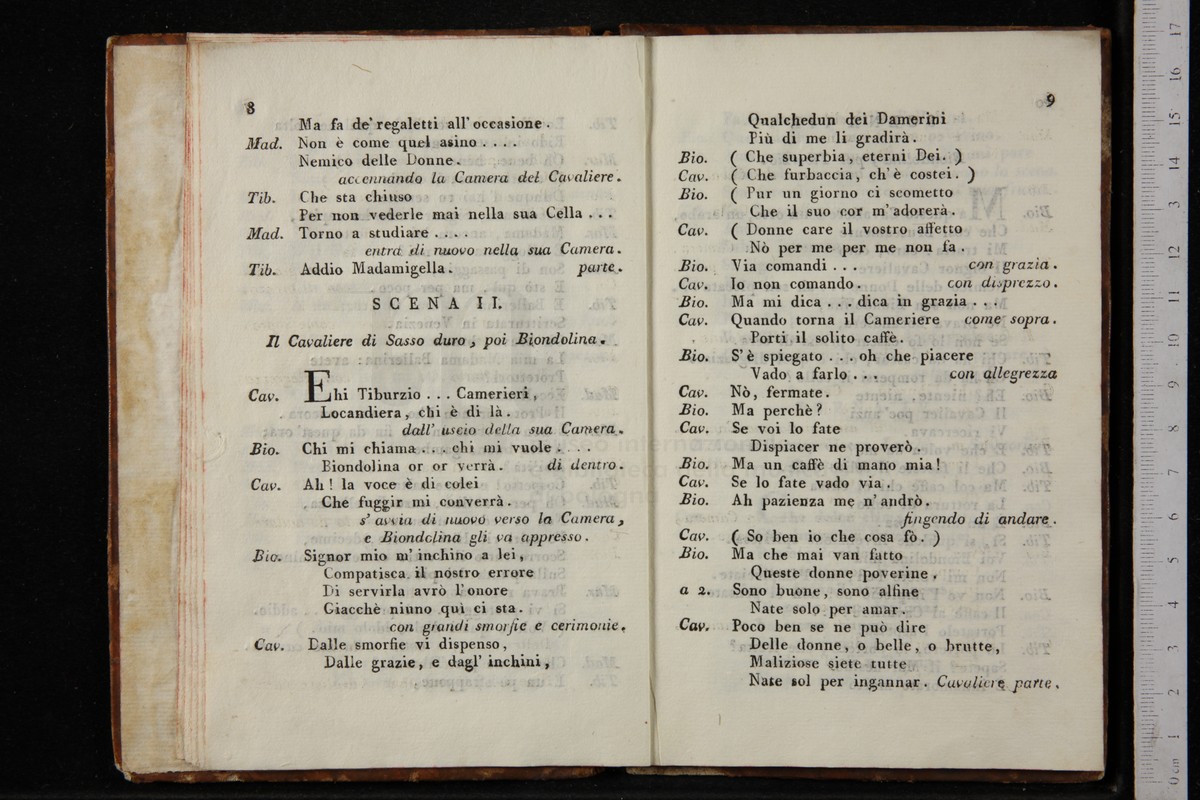 8
Ma fa de' regaletti all' occasione.
Mad. Non è come quel asino . . . .
Nemico delle Donne.
accennando la Camera del Cavaliere.
Tib. Che sta chiuso
Per non vederle mai nella sua Cella . . .
Mad. Torno a studiare . . . .
entra di nuovo nella sua Camera.
Tib. Addio Madamigella. parte.
SCENA II.
Il Cavaliere di Sasso duro, poi Biondolina.
Cav. Ehi Tiburzio . . . Camerieri,
Locandiera, chi è di là.
dall' uscio della sua Camera.
Bio. Chi mi chiama . . . chi mi vuole . . . .
Biondolina or or verrà. di dentro.
Cav. Ah! la voce è di colei
Che fuggir mi converrà.
s' avvia di nuovo verso la Camera,
e Biondolina gli va appresso.
Bio. Signor mio m' inchino a lei,
Compatisca il nostro errore
Di servirla avrò l' onore
Giacchè niuno qui ci sta.
con grandi smorfie e cerimonie.
Cav. Dalle smorfie vi dispenso,
Dalle grazie, e dagl' inchini,
9
Qualchedun dei Damerini
Più di me li gradirà.
Bio. ( Che superbia, eterni Dei. )
Cav. ( Che furbaccia, ch' è costei. )
Bio. ( Pur un giorno ci scometto
Che il suo cor m' adorerà.
Cav. ( Donne care il vostro affetto
Nò per me per me non fa.
Bio. Via comandi . . . con grazia.
Cav. Io non comando. con disprezzo.
Bio. Ma mi dica . . . dica in grazia . . .
Cav. Quando torna il Cameriere come sopra.
Porti il solito caffè.
Bio. S' è spiegato . . . oh che piacere
Vado a farlo . . . con allegrezza
Cav. Nò, fermate.
Bio. Ma perchè?
Cav. Se voi lo fate
Dispiacer ne proverò.
Bio. Ma un caffè di mano mia!
Cav. Se lo fate vado via.
Bio. Ah pazienza me n' andrò.
fingendo di andare.
Cav. ( So ben io che cosa fò. )
Bio. Ma che mai van fatto
Queste donne poverine,
a 2. Sono buone, sono alfine
Nate solo per amar.
Cav. Poco ben se ne può dire
Delle donne, o belle, o brutte,
Maliziose siete tutte
Nate sol per ingannar. Cavaliere parte.